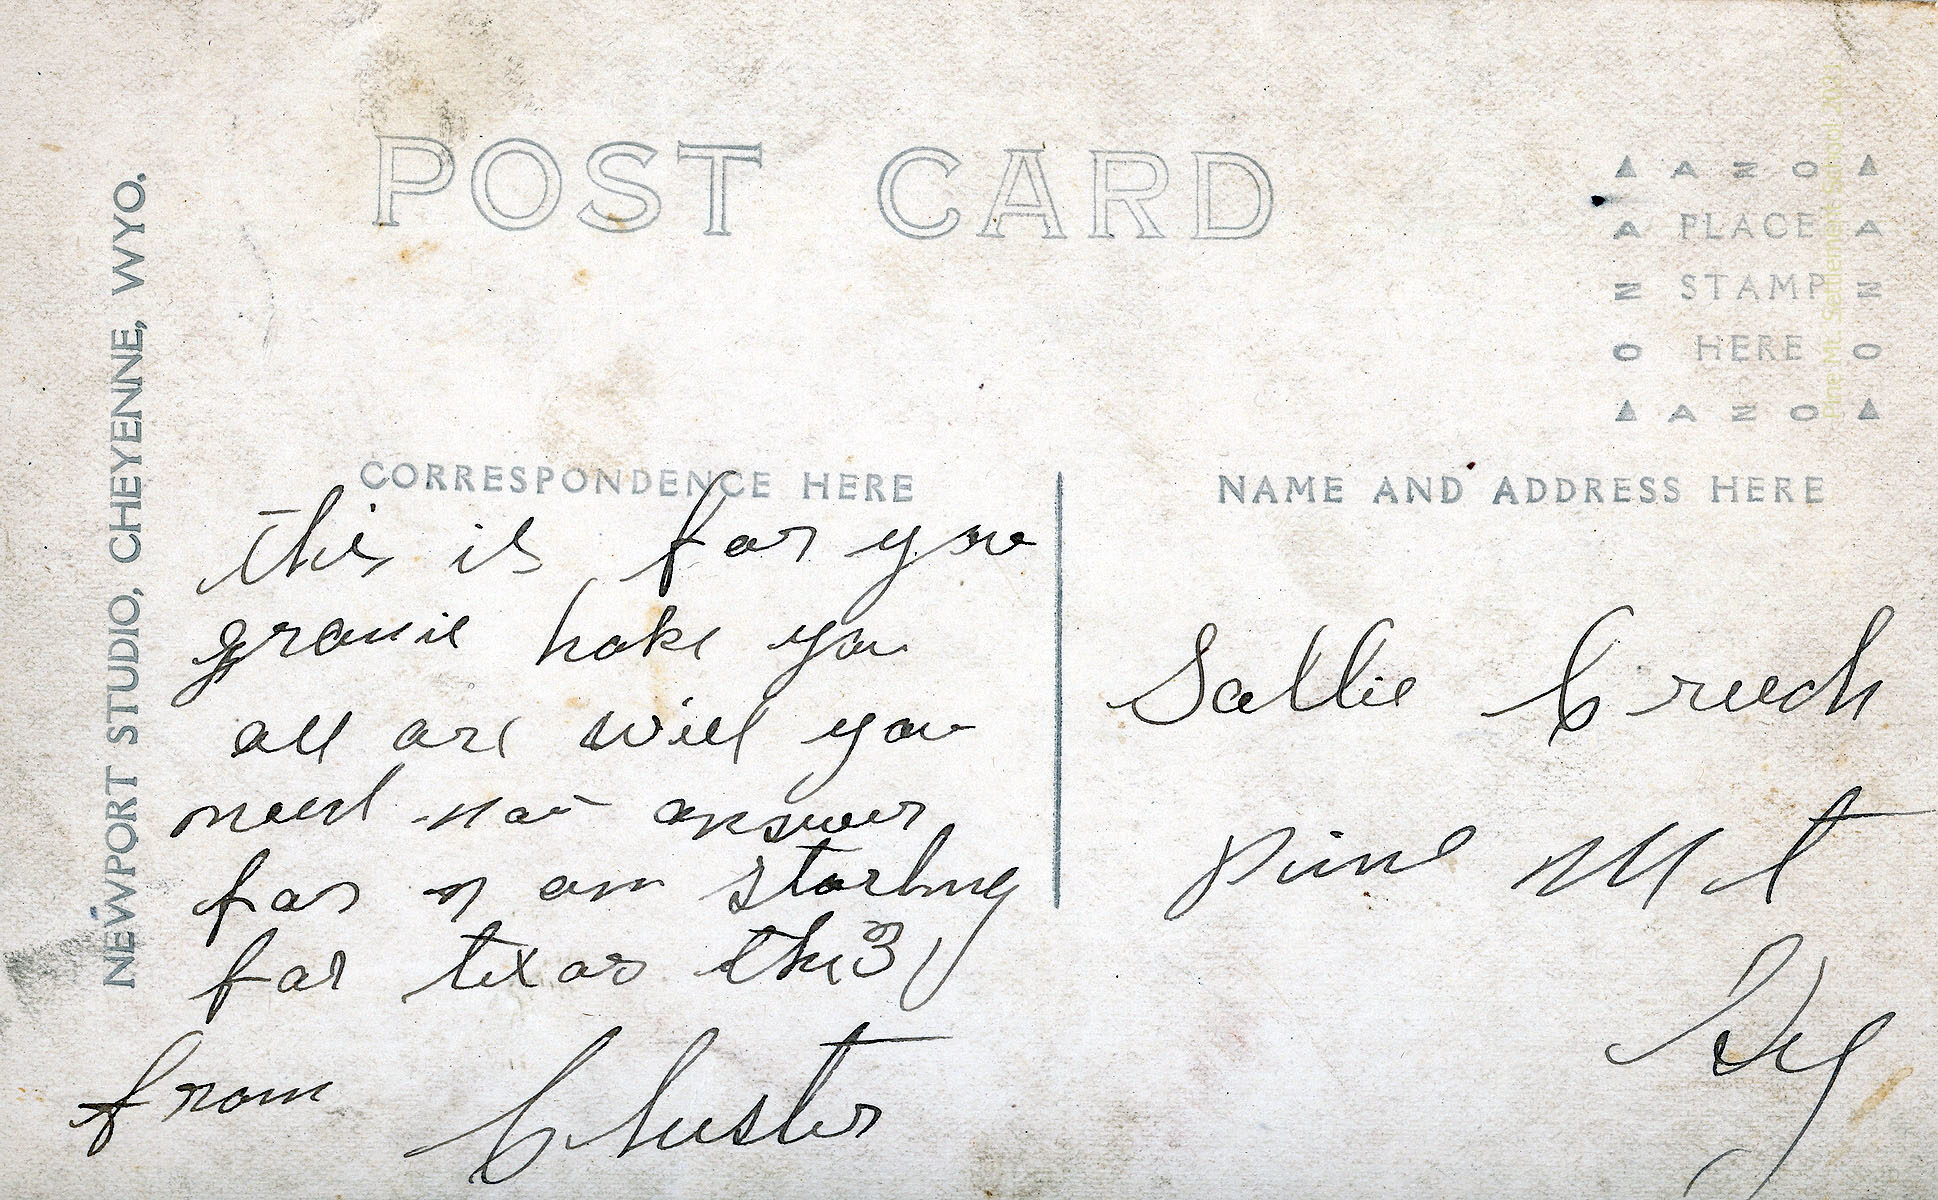 POST CARD
NEWPORT STUDIO, CHEYENNE, WYO.
AZO
PLACE
STAMP
HERE
AZO
CORRESPONDENCE HERE
this is for you
granie hope you
all are well you
need not answer
for I am starting
for texas the 3
from Chester
NAME AND ADDRESS HERE
Sallie Creech
Pine Mt
Ky
Pine Mt. Settlement School